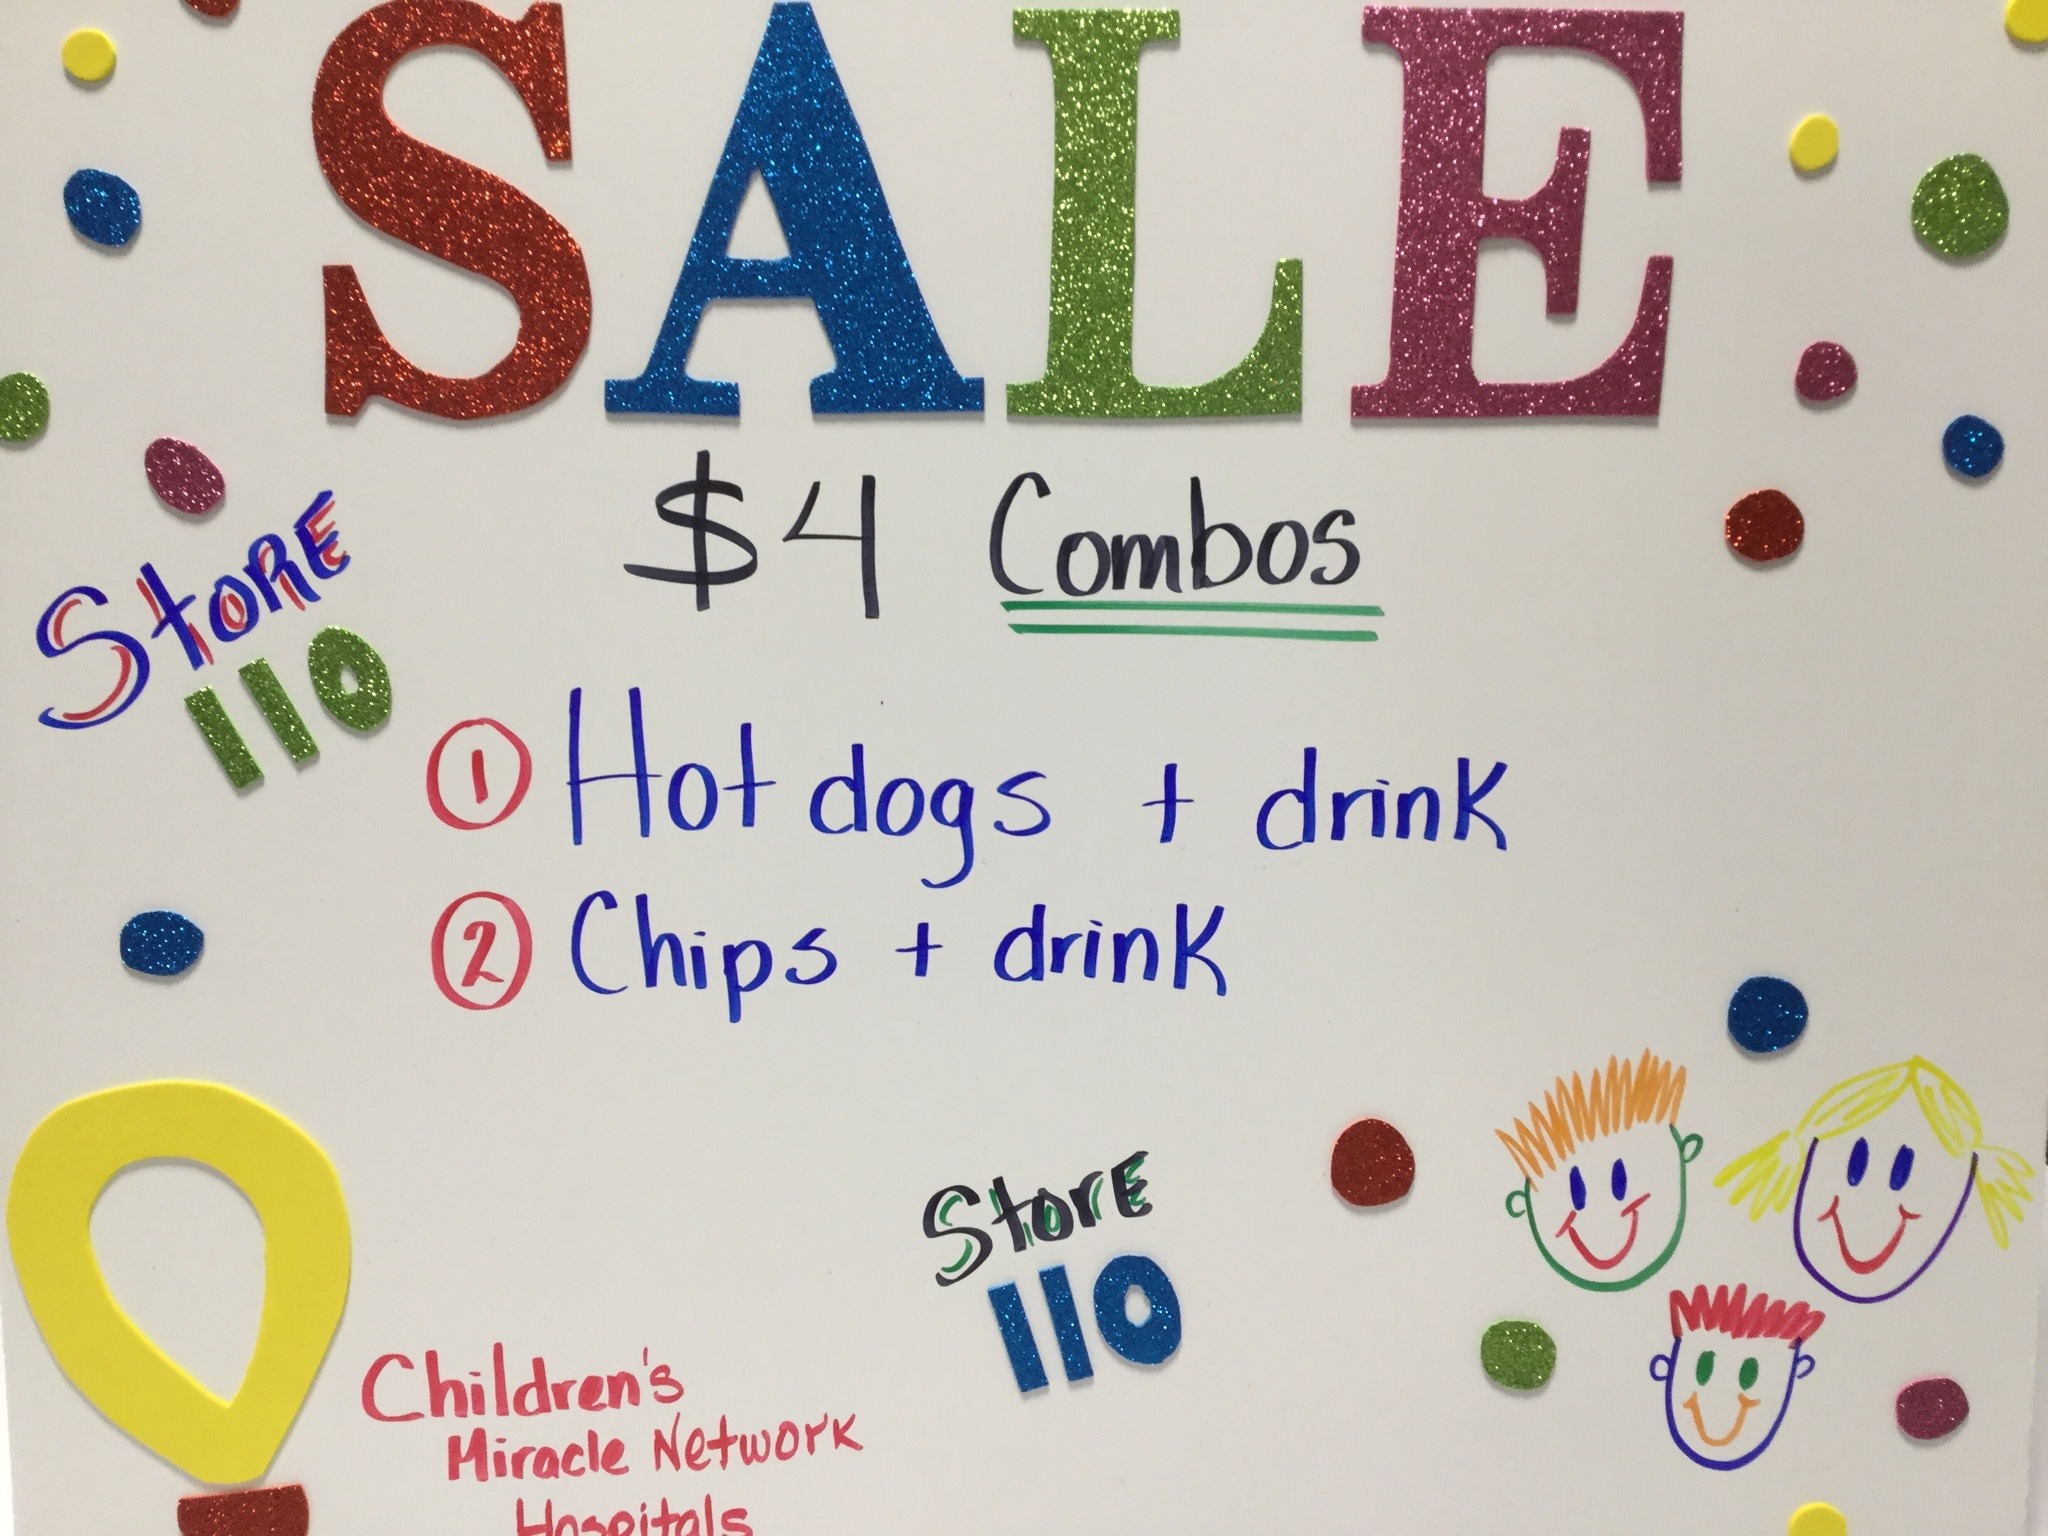 SALE
$4 Combos
StoRE
110
1 Hot dogs + drink
2 Chips + drink
StorE
110
Children's
Miracle Network
Hospitals